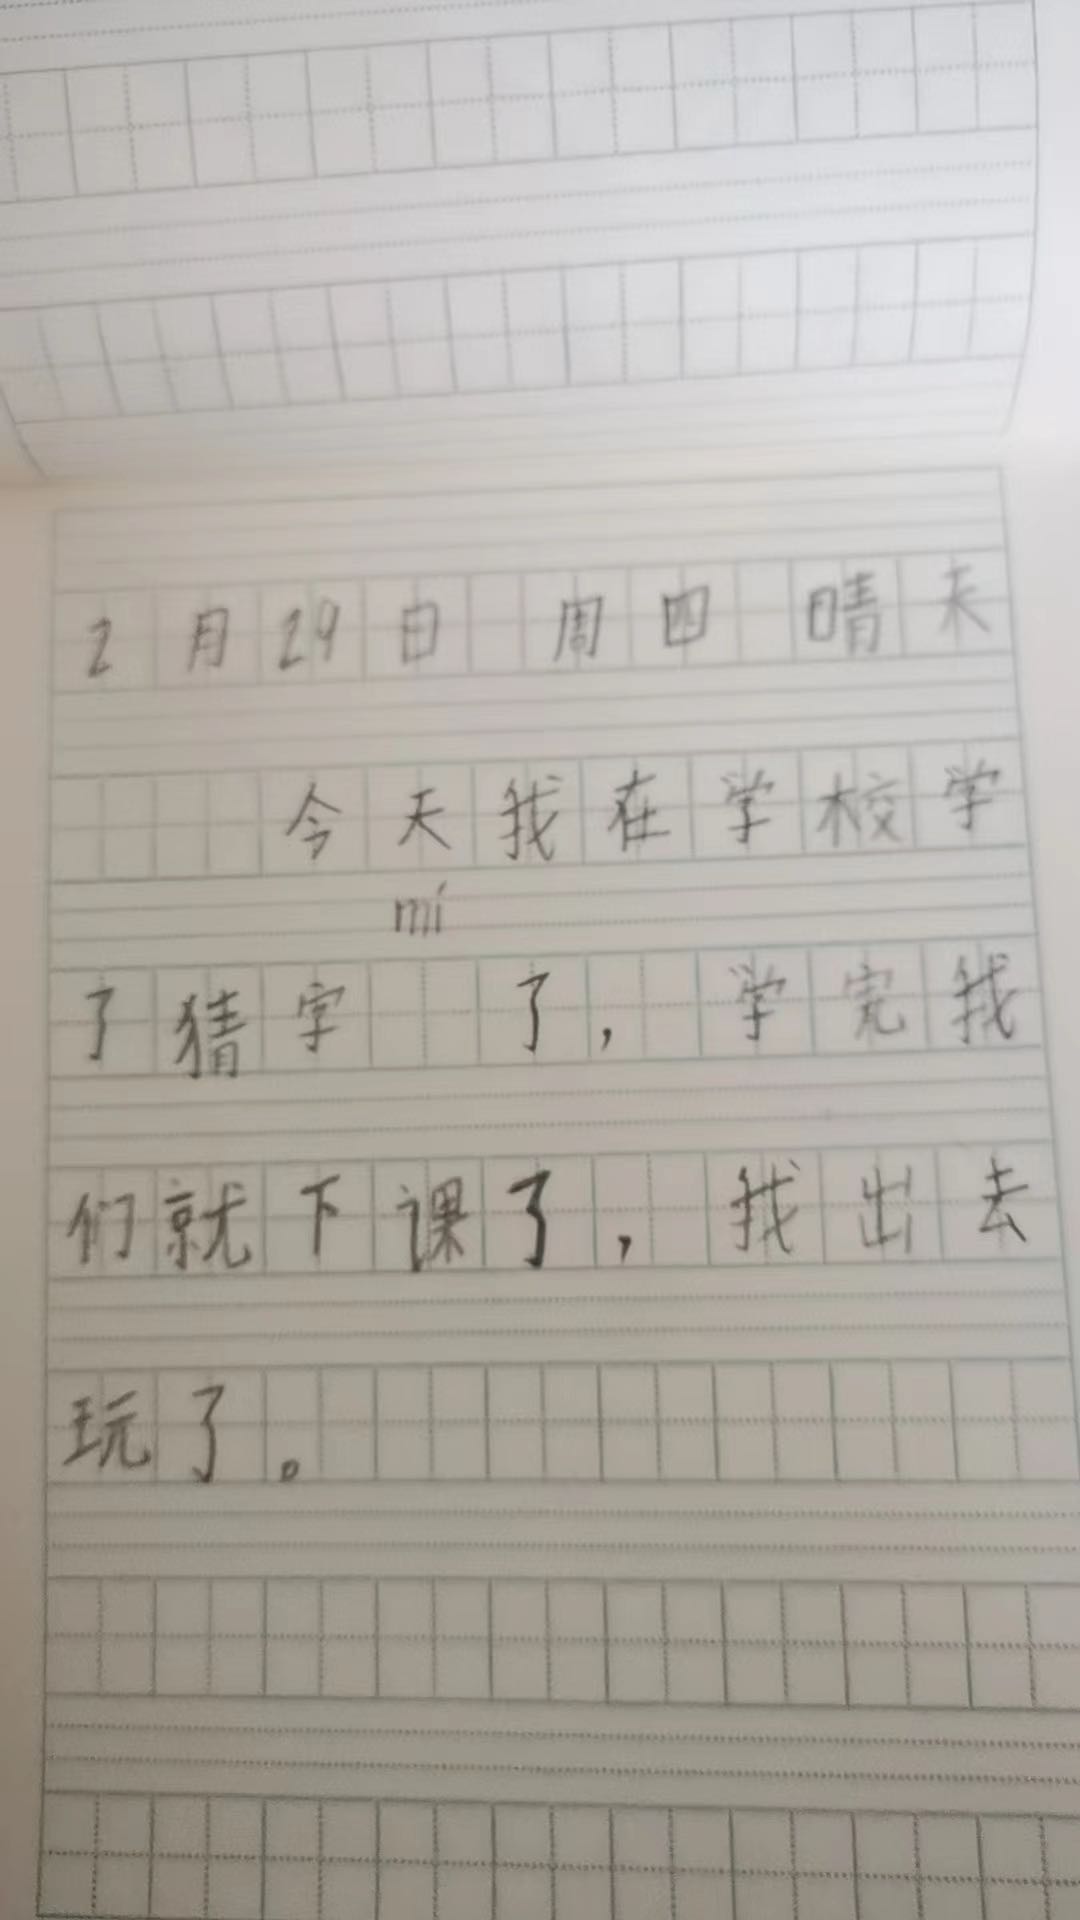 2月29日 周四 晴天
今天我在学校学
mí
了猜字 了，学完我
们就下课了，我出去
玩了。